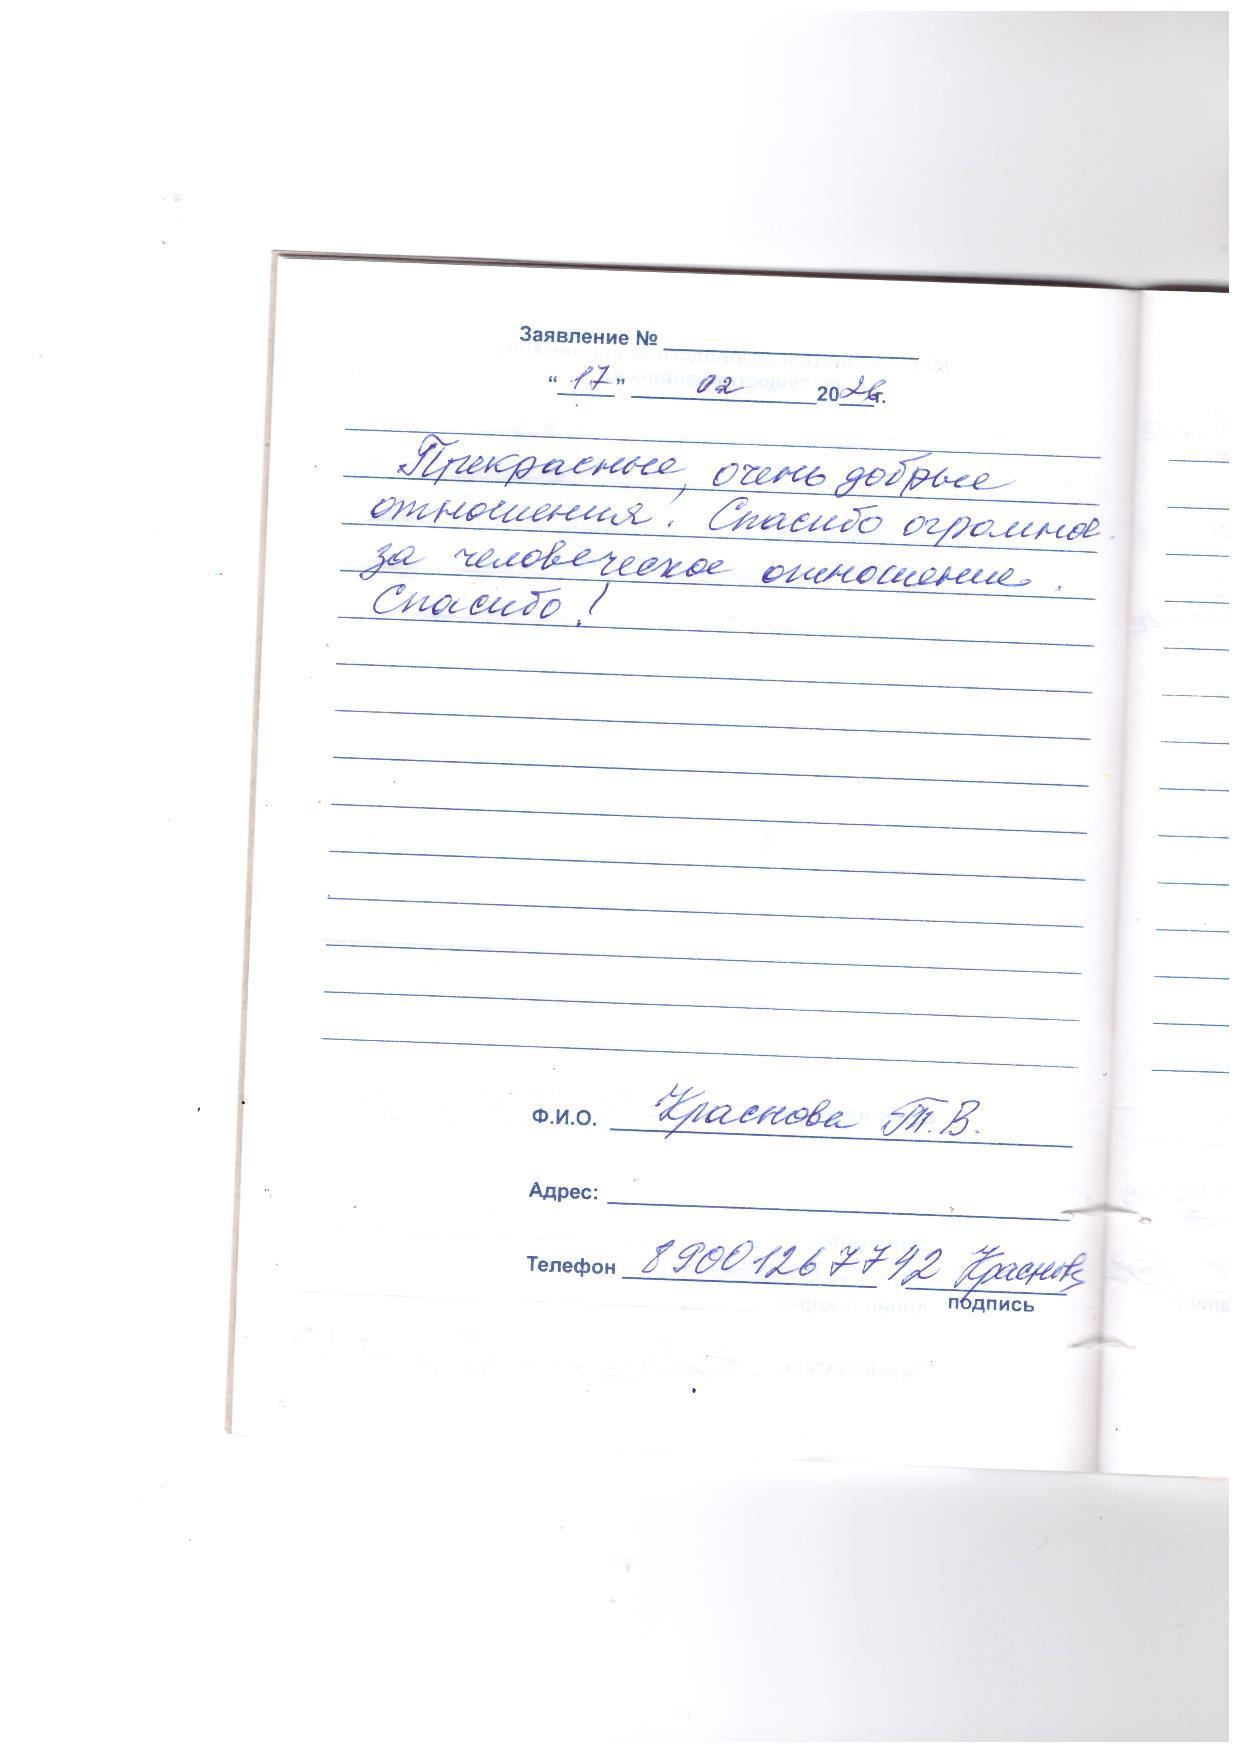 Заявление №
“17” 02 2026г.
Прекрасные, очень добрые
отношения. Спасибо огромное
за человеческое отношение.
Спасибо!
Ф.И.О. Краснова Т.В.
Адрес:
Телефон 89001267742 Краснова
подпись